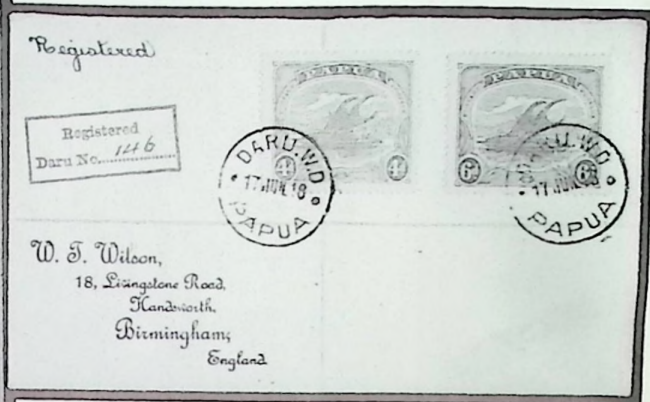 Registered
Registered
Daru No. 146
4d 4d
6d 6d
DARU.W.D
17 JUN 18
PAPUA
DARU.W.D
17 JUN 18
PAPUA
W. T. Wilson,
18, Livingstone Road,
Handsworth,
Birmingham,
England